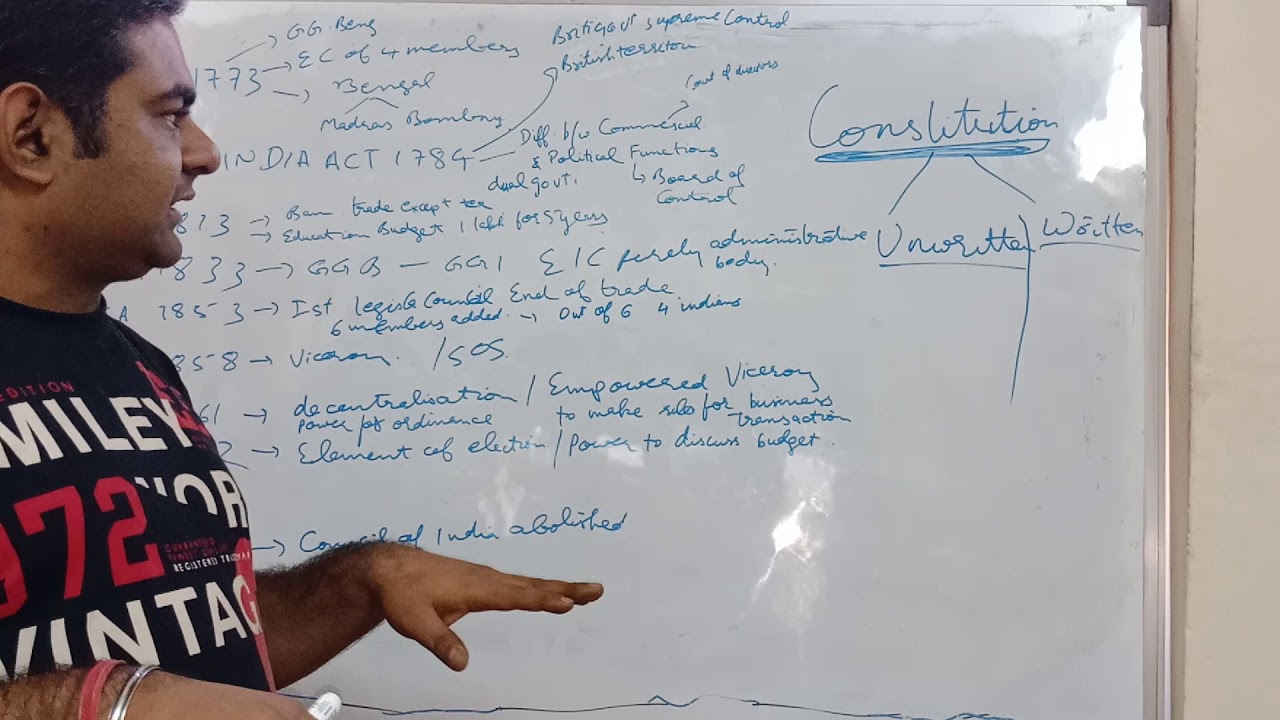 GG. Beng
1773 → EC of 4 members
→ Bengal
Madras Bombay
British Govt supreme Control
British territory
Court of directors
INDIA ACT 1784
Diff. b/w Commercial
& Political Functions
dual govt.
↳ Board of
Control
813 → Ban trade except tea
→ Education Budget 1 lakh for 5 years
833 → GGB — GGI EIC purely administrative
body.
1853 → Ist legis Council End of trade
6 members added. → Out of 6 4 indians
858 → Viceroy. / SOS.
61 → decentralisation / Empowered Viceroy
power of ordinance to make rules for business
transaction
2 → Element of election / Power to discuss budget.
→ Council of India abolished
Constitution
Unwritten Written
EDITION
SMILEY
1972
WOR
GUARANTEED
REGISTERED TRA
VINTAG